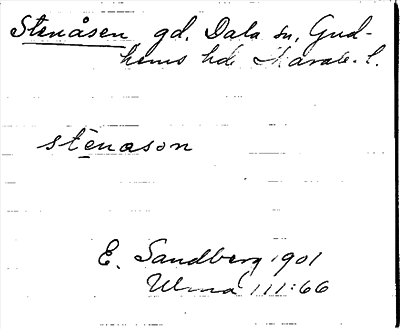 Stenåsen gd. Dala sn, Gud-
hems hd. Skarab. l.
stenåson
E. Sandberg 1901
Ulma 111:66